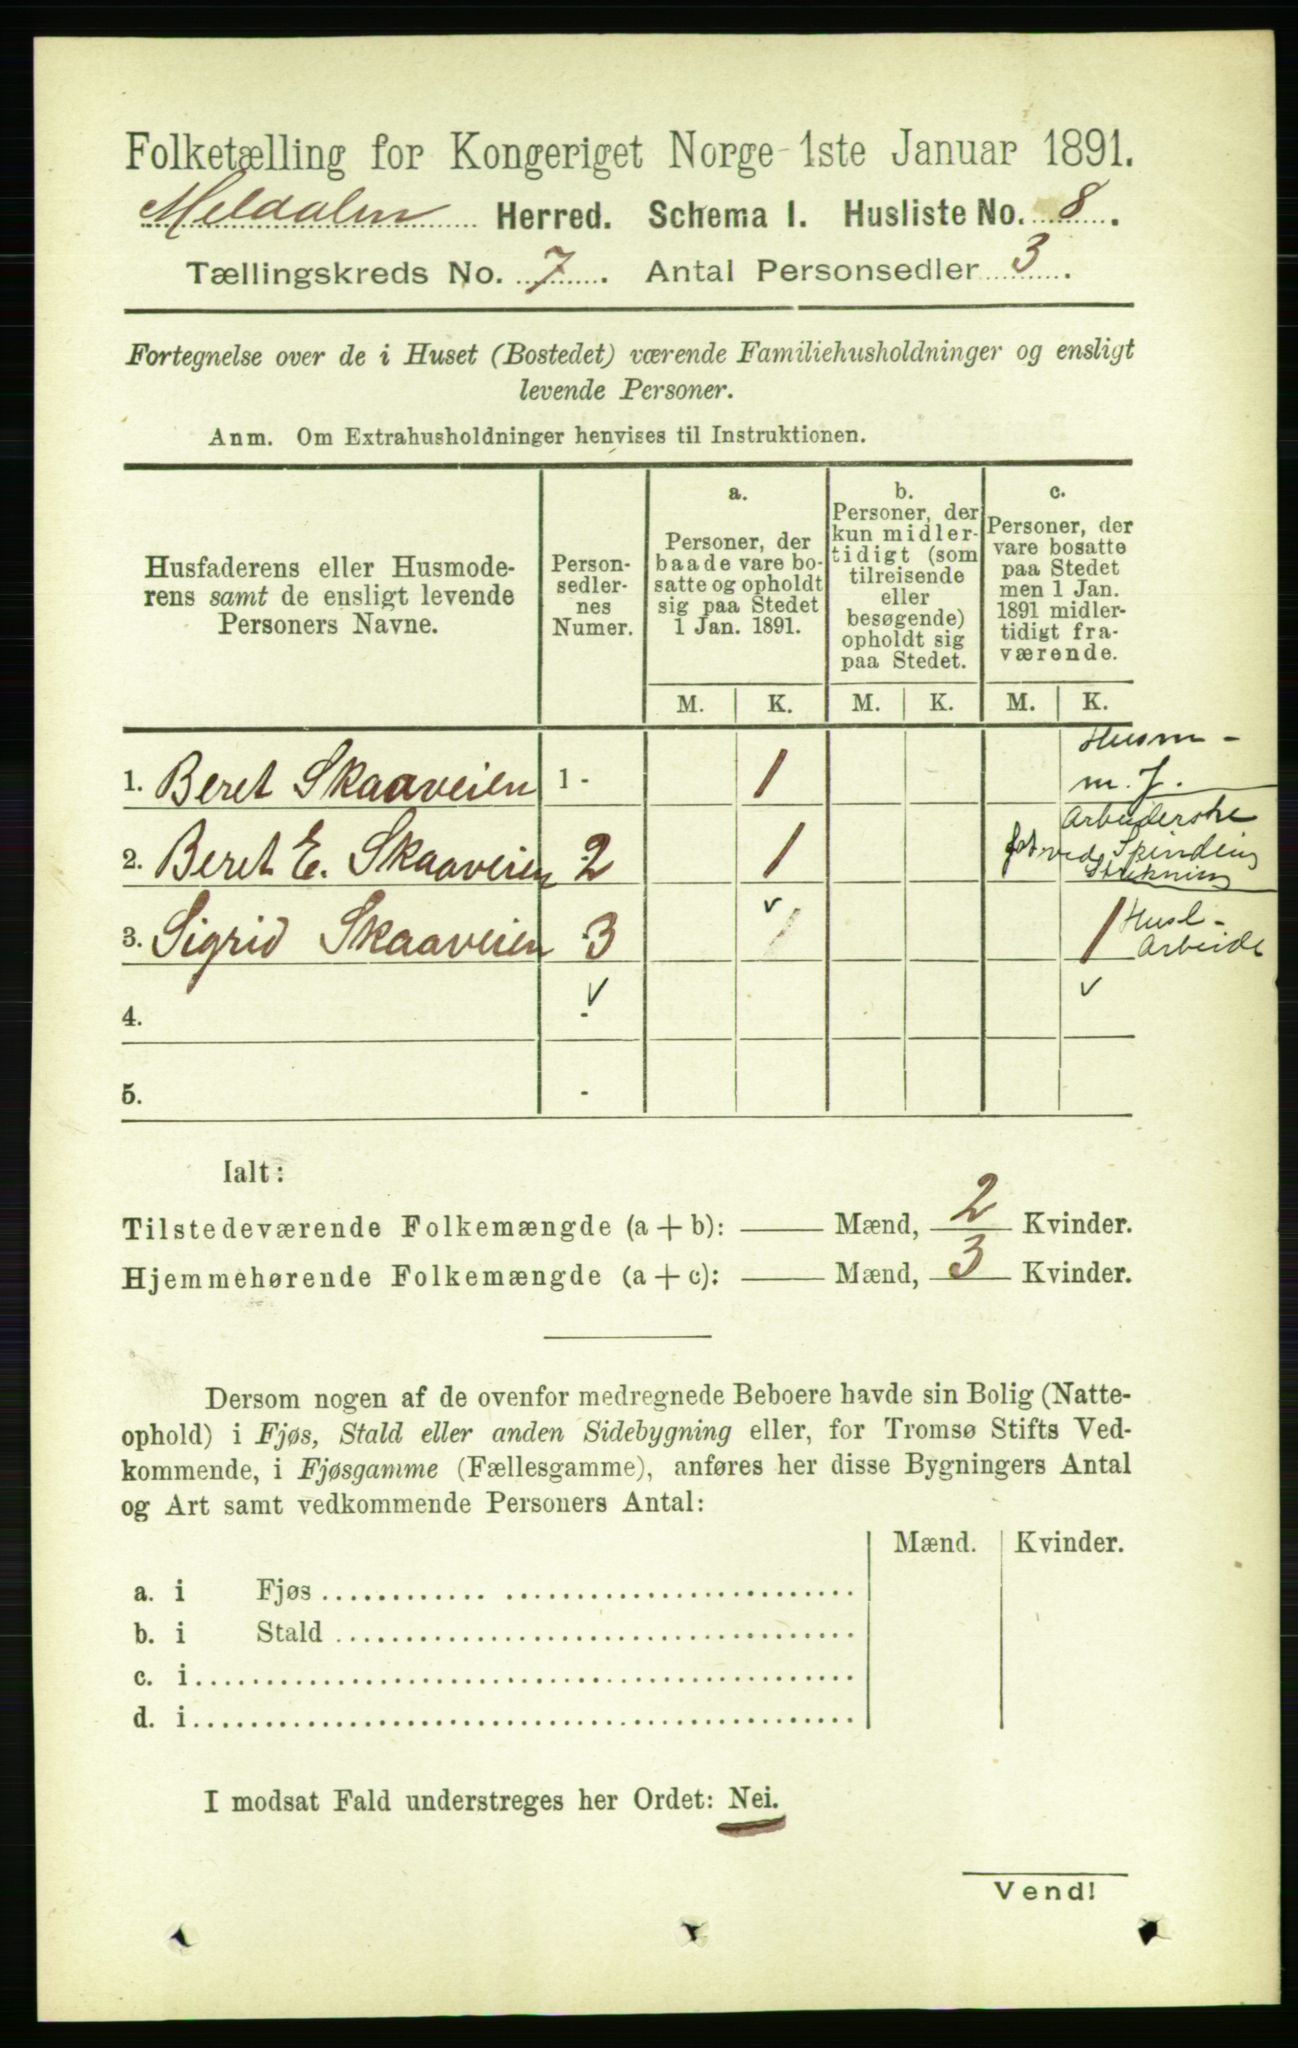 Folketælling for Kongeriget Norge 1ste Januar 1891.
Meldalen Herred. Schema I. Husliste No. 8.
Tællingskreds No. 7. Antal Personsedler 3.
Fortegnelse over de i Huset (Bostedet) værende Familiehusholdninger og ensligt
levende Personer.
Anm. Om Extrahusholdninger henvises til Instruktionen.
Husfaderens eller Husmode-
rens samt de ensligt levende
Personers Navne.
Person-
sedler-
nes
Numer.
a.
Personer, der
baade vare bo-
satte og opholdt
sig paa Stedet
1 Jan. 1891.
b.
Personer, der
kun midler-
tidigt (som
tilreisende
eller
besøgende)
opholdt sig
paa Stedet.
c.
Personer, der
vare bosatte
paa Stedet
men 1 Jan.
1891 midler-
tidigt fra-
værende.
M. K. M. K. M. K.
1. Beret Skaaveien 1 - 1 Husm -
m. J.
2. Beret E. Skaaveien 2 1 Arbeiderske
ved Spinding
Strikning
3. Sigrid Skaaveien 3 v 1 1 Husl-
Arbeide
4. v - v
5. -
Ialt:
Tilstedeværende Folkemængde (a + b): —— Mænd, 2 Kvinder.
Hjemmehørende Folkemængde (a + c): —— Mænd, 3 Kvinder.
Dersom nogen af de ovenfor medregnede Beboere havde sin Bolig (Natte-
ophold) i Fjøs, Stald eller anden Sidebygning eller, for Tromsø Stifts Ved-
kommende, i Fjøsgamme (Fællesgamme), anføres her disse Bygningers Antal
og Art samt vedkommende Personers Antal:
Mænd. Kvinder.
a. i Fjøs
b. i Stald
c. i
d. i
I modsat Fald understreges her Ordet: Nei.
Vend!